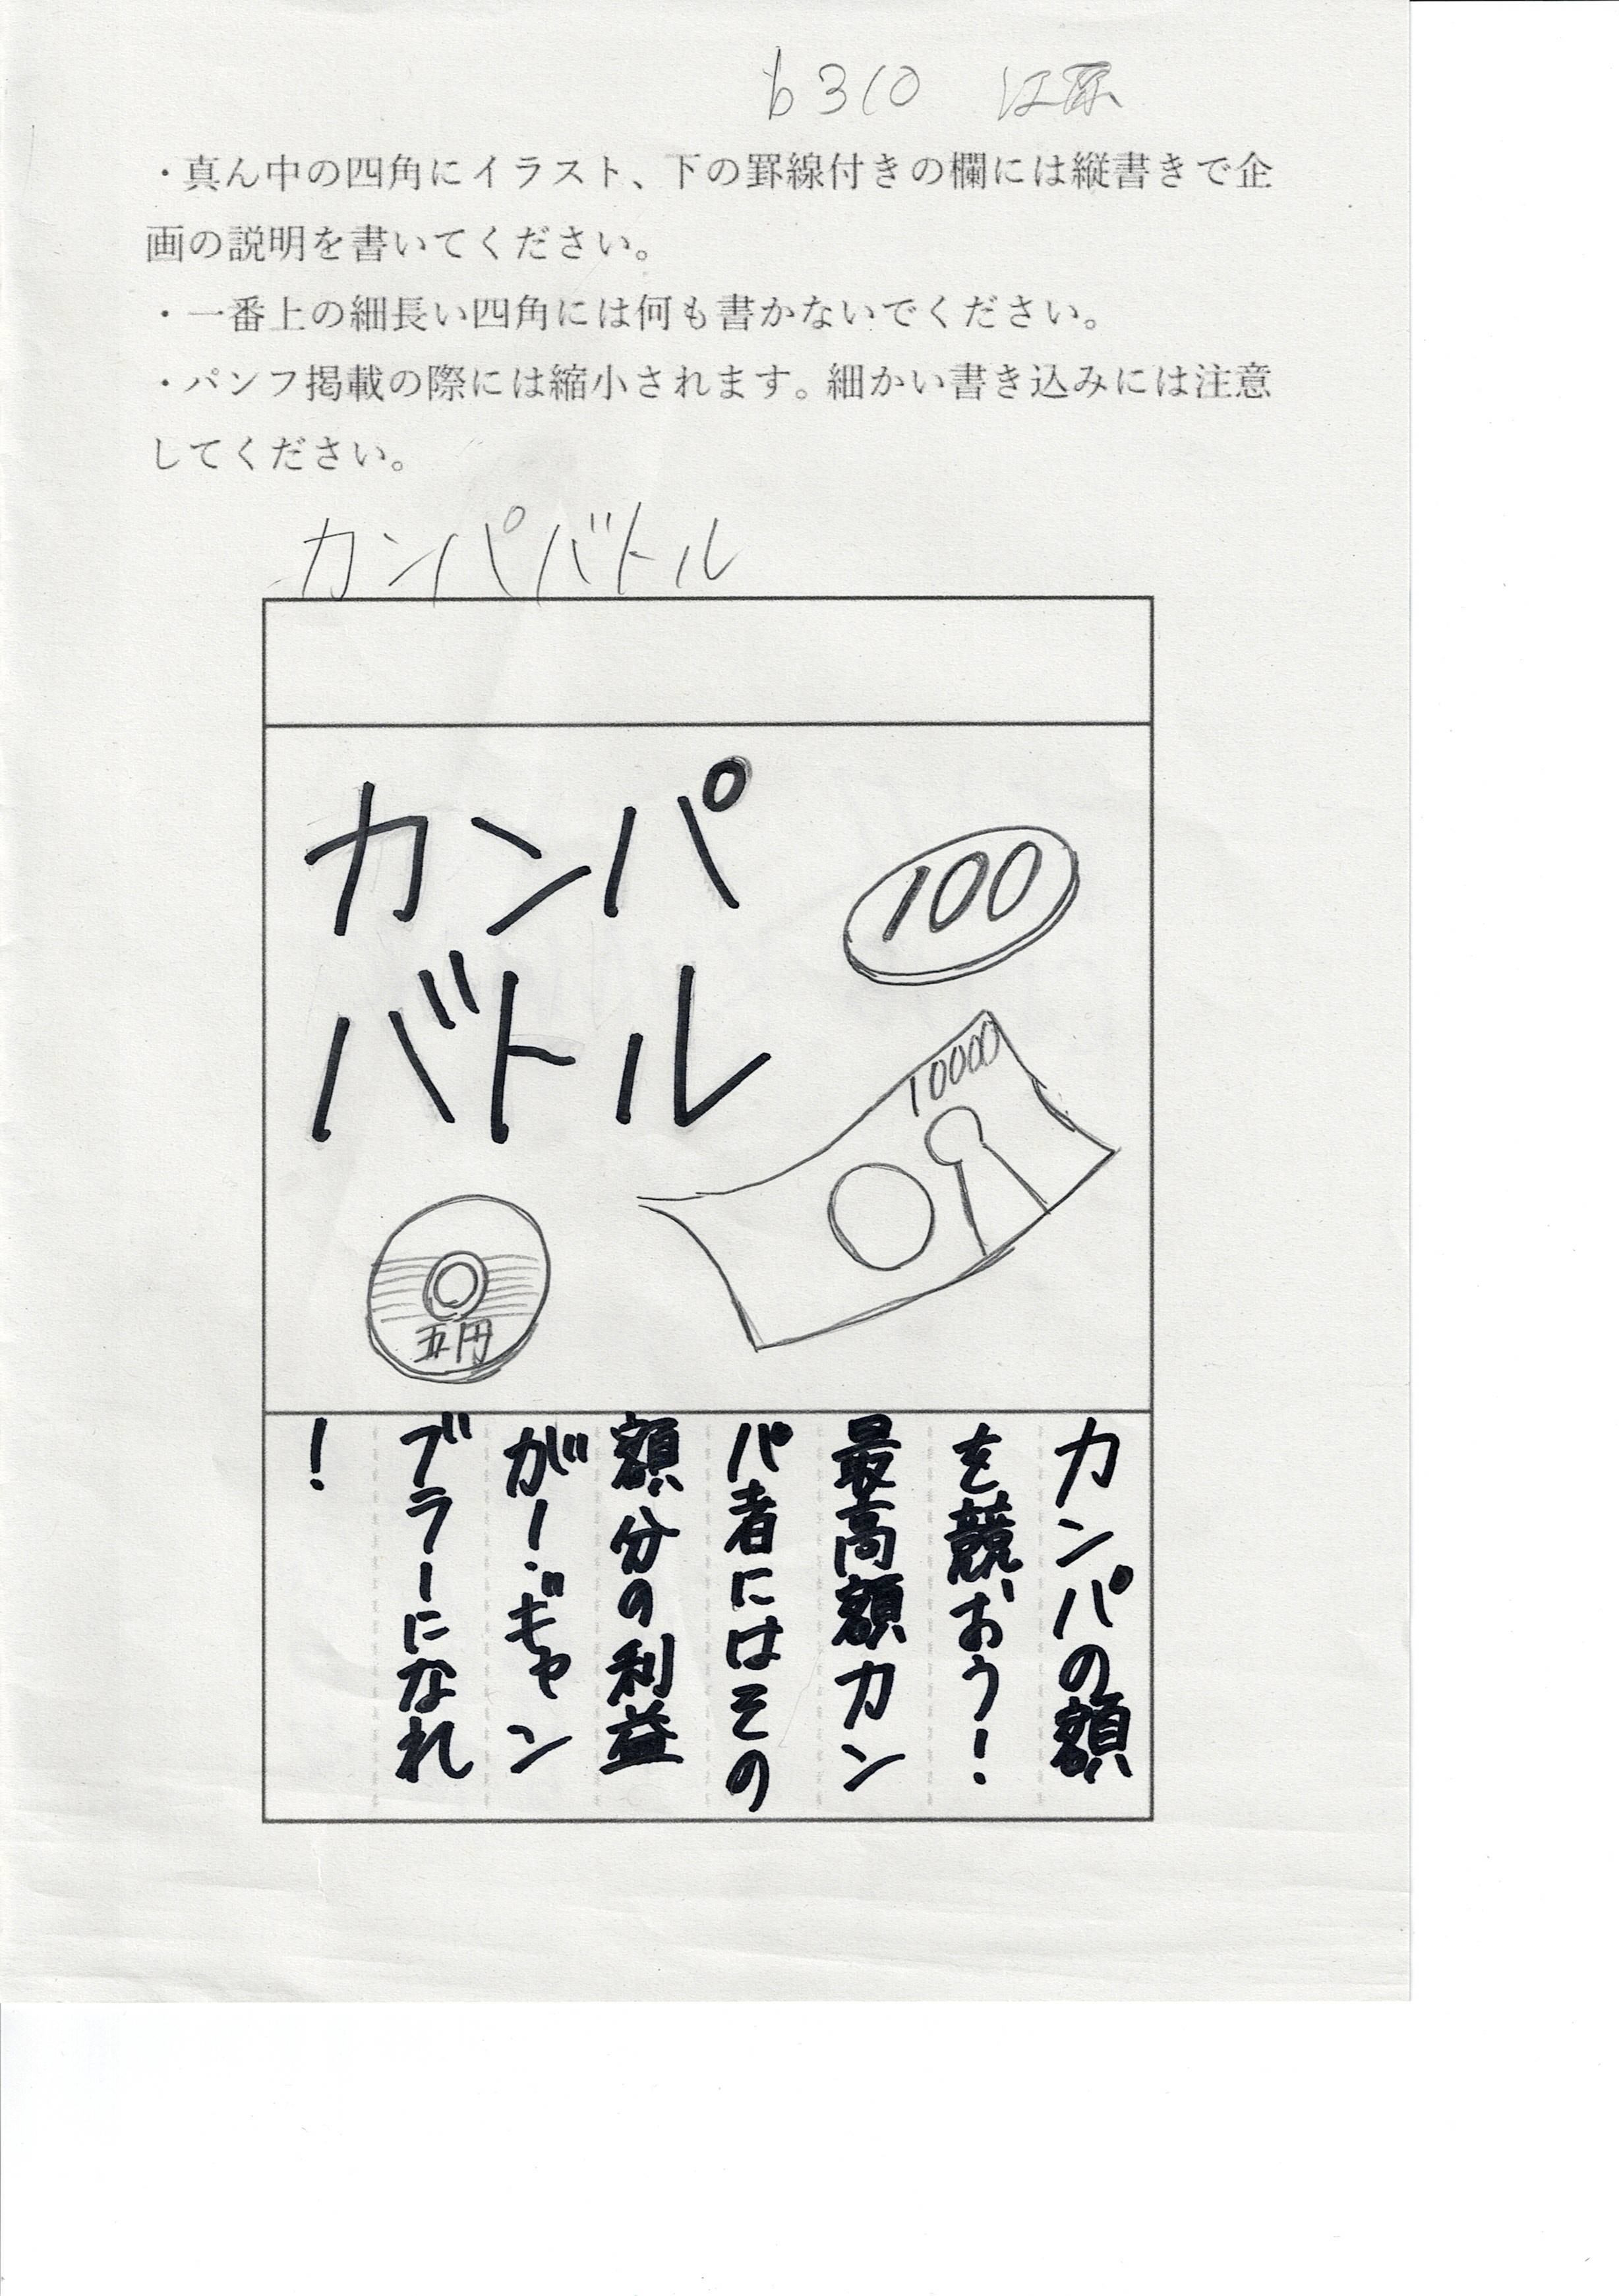 b310
・真ん中の四角にイラスト、下の罫線付きの欄には縦書きで企
画の説明を書いてください。
・一番上の細長い四角には何も書かないでください。
・パンフ掲載の際には縮小されます。細かい書き込みには注意
してください。
カンパバトル
カンパ
バトル
100
10000
五円
カンパの額
を競おう！
最高額カン
パ者にはその
額分の利益
が！ギャン
ブラーになれ
！